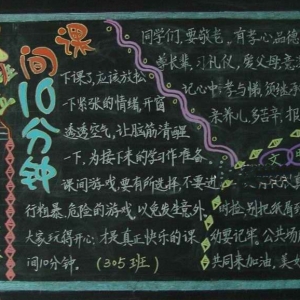 课间10分钟
下课了,应该放松
一下紧张的情绪,开窗
透透空气,让脑筋清醒
一下,为接下来的学习作准备。
课间游戏要有所选择,不要进
行粗暴、危险的游戏,以免发生意外。
大家玩得开心,才是真正快乐的课
间10分钟。(305班)
同学们,要敬老,有孝心,品德
尊长辈,习礼仪,爱父母,意
记心中,孝与悌,须继承
来养儿,多苦辛,报
文
时捡,别把纸屑
幼要记牢,公共场
共同来加油,美好